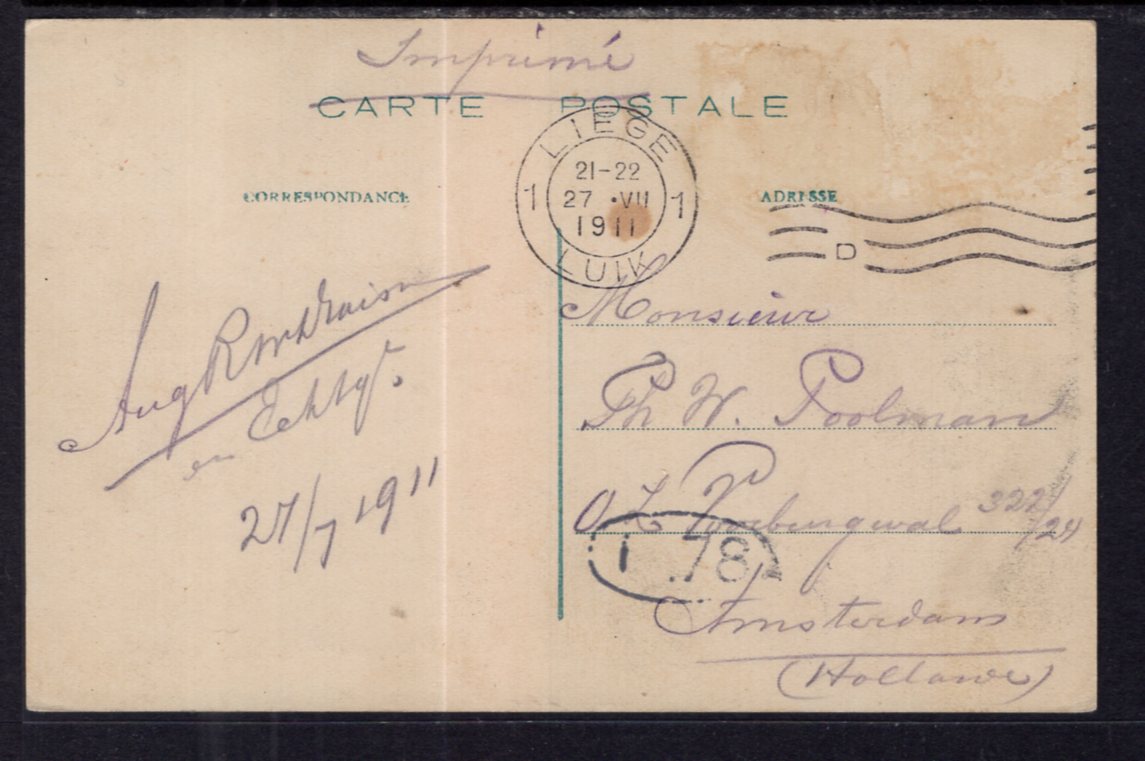 Imprimé
CARTE POSTALE
LIÈGE
21-22
1 27 · VII 1
1911
LUIK
CORRESPONDANCE
ADRESSE
D
Aug
en Echtg.
27/7 1911
Monsieur
Th. W. Poolman
O Z Voorburgwal 322/24
1 78
Amsterdam
(Hollande)